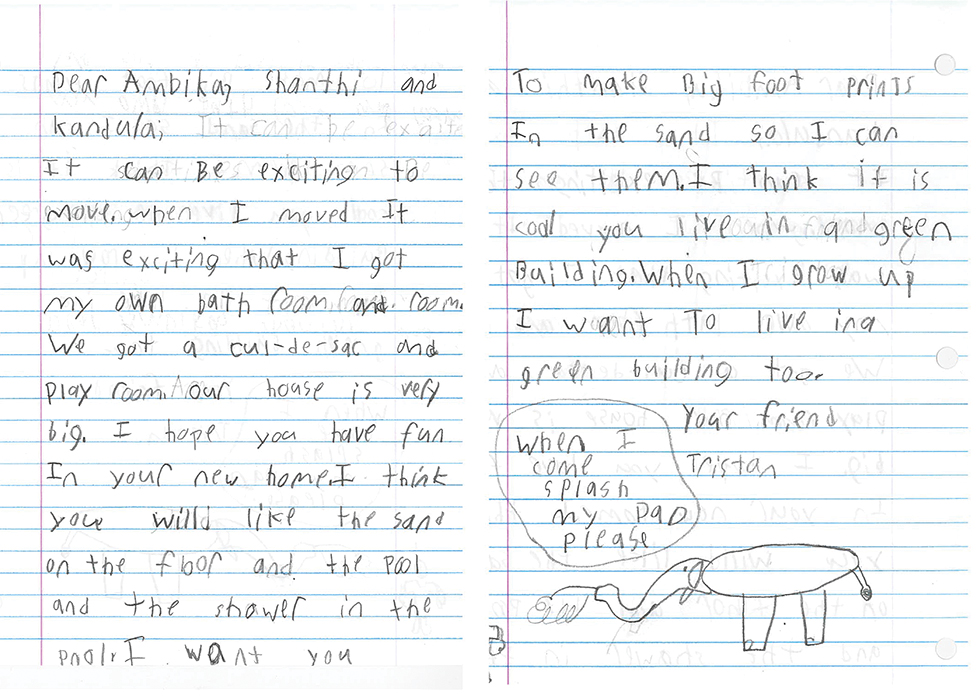 Dear Ambika, Shanthi and
kandula; It can be excite
It can Be exciting to
move. when I moved It
was exciting that I got
my own bath room. and. room.
We got a cul-de-sac and
play room. our house is very
big. I hope you have fun
In your new home. I think
youe willd like the sand
on the floor and the pool
and the shower in the
pool. I want you
To make Big foot prints
In the sand so I can
see them. I think it is
cool you live in a green
Building. When I grow up
I want To live in a
green building too.
your friend
Tristan
when I
come
splash
my DaD
please